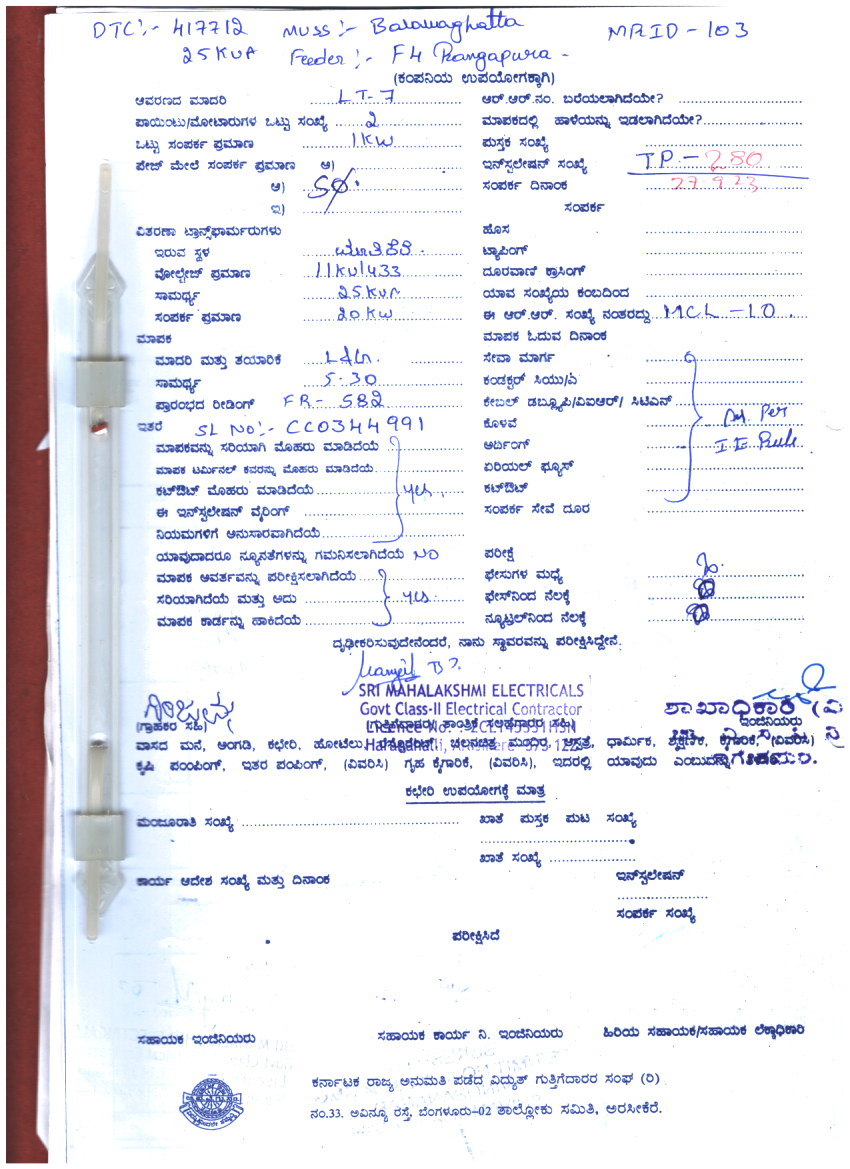 DTC:- 417712 MUSS :- Balawaghatta MRID - 103
25KVA Feeder :- F4 Rangapura -
(ಕಂಪನಿಯ ಉಪಯೋಗಕ್ಕಾಗಿ)
ಆವರಣದ ಮಾದರಿ LT-7 ಆರ್.ಆರ್.ನಂ. ಬರೆಯಲಾಗಿದೆಯೇ?
ಪಾಯಿಂಟು/ಮೋಟಾರುಗಳ ಒಟ್ಟು ಸಂಖ್ಯೆ 2 ಮಾಪಕದಲ್ಲಿ ಹಾಳೆಯನ್ನು ಇಡಲಾಗಿದೆಯೇ?
ಒಟ್ಟು ಸಂಪರ್ಕ ಪ್ರಮಾಣ 1KW ಪುಸ್ತಕ ಸಂಖ್ಯೆ
ಪೇಜ್ ಮೇಲೆ ಸಂಪರ್ಕ ಪ್ರಮಾಣ ಅ) ಇನ್‌ಸ್ಟಲೇಷನ್ ಸಂಖ್ಯೆ TP-280
ಆ) ಸಂಪರ್ಕ ದಿನಾಂಕ 27.9.23
ಇ) ಸಂಪರ್ಕ
ವಿತರಣಾ ಟ್ರಾನ್ಸ್‌ಫಾರ್ಮರುಗಳು ಹೊಸ
ಇರುವ ಸ್ಥಳ ಟ್ಯಾಪಿಂಗ್
ವೋಲ್ಟೇಜ್ ಪ್ರಮಾಣ 11KV/433 ದೂರವಾಣಿ ಕ್ರಾಸಿಂಗ್
ಸಾಮರ್ಥ್ಯ 25KVA ಯಾವ ಸಂಖ್ಯೆಯ ಕಂಬದಿಂದ
ಸಂಪರ್ಕ ಪ್ರಮಾಣ 20KW ಈ ಆರ್.ಆರ್. ಸಂಖ್ಯೆ ನಂತರದ್ದು MCL-10
ಮಾಪಕ ಮಾಪಕ ಓದುವ ದಿನಾಂಕ
ಮಾದರಿ ಮತ್ತು ತಯಾರಿಕೆ L&G. ಸೇವಾ ಮಾರ್ಗ
ಸಾಮರ್ಥ್ಯ 5-30 ಕಂಡಕ್ಟರ್ ಸಿಯು/ಎ
ಪ್ರಾರಂಭದ ರೀಡಿಂಗ್ FR- 582 ಕೇಬಲ್ ಡಬ್ಲ್ಯೂಪಿ/ವಿಐಆರ್/ ಸಿಟಿಎನ್
ಇತರೆ SL NO:- CC0344991 ಕೊಳವೆ As Per
ಮಾಪಕವನ್ನು ಸರಿಯಾಗಿ ಮೊಹರು ಮಾಡಿದೆಯೆ ಅರ್ದಿಂಗ್ I E Rule
ಮಾಪಕ ಟರ್ಮಿನಲ್ ಕವರನ್ನು ಮೊಹರು ಮಾಡಿದೆಯೆ ಏರಿಯಲ್ ಫ್ಯೂಸ್
ಕಟ್‌ಔಟ್ ಮೊಹರು ಮಾಡಿದೆಯೆ yes. ಕಟ್‌ಔಟ್
ಈ ಇನ್‌ಸ್ಟಲೇಷನ್ ವೈರಿಂಗ್ ಸಂಪರ್ಕ ಸೇವೆ ದೂರ
ನಿಯಮಗಳಿಗೆ ಅನುಸಾರವಾಗಿದೆಯೆ
ಯಾವುದಾದರೂ ನ್ಯೂನತೆಗಳನ್ನು ಗಮನಿಸಲಾಗಿದೆಯೆ NO ಪರೀಕ್ಷೆ
ಮಾಪಕ ಆವರ್ತವನ್ನು ಪರೀಕ್ಷಿಸಲಾಗಿದೆಯೆ ಫೇಸುಗಳ ಮಧ್ಯೆ
ಸರಿಯಾಗಿದೆಯೆ ಮತ್ತು ಅದು yes. ಫೇಸ್‌ನಿಂದ ನೆಲಕ್ಕೆ
ಮಾಪಕ ಕಾರ್ಡನ್ನು ಹಾಕಿದೆಯೆ ನ್ಯೂಟ್ರಲ್‌ನಿಂದ ನೆಲಕ್ಕೆ
ದೃಢೀಕರಿಸುವುದೇನೆಂದರೆ, ನಾನು ಸ್ಥಾವರವನ್ನು ಪರೀಕ್ಷಿಸಿದ್ದೇನೆ.
SRI MAHALAKSHMI ELECTRICALS
Govt Class-II Electrical Contractor ಶಾಖಾಧಿಕಾರಿ
(ಗ್ರಾಹಕರ ಸಹಿ) (ಗುತ್ತಿಗೆದಾರರ/ ತಾಂತ್ರಿಕ ಸಲಹೆಗಾರರ ಸಹಿ) ಇಂಜಿನಿಯರು
ವಾಸದ ಮನೆ, ಅಂಗಡಿ, ಕಛೇರಿ, ಹೋಟೆಲು, ಚಲನಚಿತ್ರ ಮಂದಿರ, ಆಸ್ಪತ್ರೆ, ಧಾರ್ಮಿಕ, ಶೈಕ್ಷಣಿಕ, ಕೈಗಾರಿಕೆ, (ವಿವರಿಸಿ)
ಕೃಷಿ ಪಂಪಿಂಗ್, ಇತರ ಪಂಪಿಂಗ್, (ವಿವರಿಸಿ) ಗೃಹ ಕೈಗಾರಿಕೆ, (ವಿವರಿಸಿ), ಇದರಲ್ಲಿ ಯಾವುದು ಎಂಬುದನ್ನು
ಕಛೇರಿ ಉಪಯೋಗಕ್ಕೆ ಮಾತ್ರ
ಮಂಜೂರಾತಿ ಸಂಖ್ಯೆ ಖಾತೆ ಪುಸ್ತಕ ಪುಟ ಸಂಖ್ಯೆ
ಖಾತೆ ಸಂಖ್ಯೆ
ಕಾರ್ಯ ಆದೇಶ ಸಂಖ್ಯೆ ಮತ್ತು ದಿನಾಂಕ ಇನ್‌ಸ್ಟಲೇಷನ್
ಸಂಪರ್ಕ ಸಂಖ್ಯೆ
ಪರೀಕ್ಷಿಸಿದೆ
ಸಹಾಯಕ ಇಂಜಿನಿಯರು ಸಹಾಯಕ ಕಾರ್ಯ ನಿ. ಇಂಜಿನಿಯರು ಹಿರಿಯ ಸಹಾಯಕ/ಸಹಾಯಕ ಲೆಕ್ಕಾಧಿಕಾರಿ
ಕರ್ನಾಟಕ ರಾಜ್ಯ ಅನುಮತಿ ಪಡೆದ ವಿದ್ಯುತ್ ಗುತ್ತಿಗೆದಾರರ ಸಂಘ (ರಿ)
ನಂ.33. ಅವಿನ್ಯೂ ರಸ್ತೆ, ಬೆಂಗಳೂರು-02 ತಾಲ್ಲೋಕು ಸಮಿತಿ, ಅರಸೀಕೆರೆ.